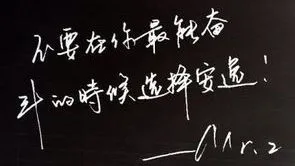 不要在你最能奋
斗的時候选择安逸！
——Mr.z